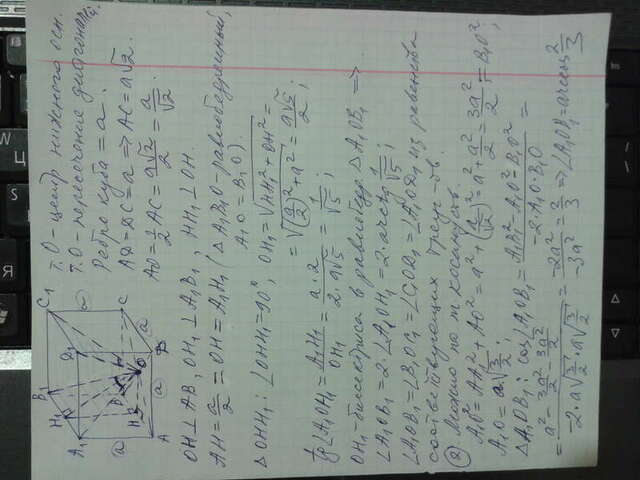 Т. О - центр нижнего осн.
Т. О - пересечение диагоналей.
Ребро куба = a.
AD = DC = a => AC = a√2
AO = 1/2 AC = a√2/2 = a/√2
B₁ C₁ H₁ D₁ A₁ B C H D O A a a a
OH ⊥ AB, OH₁ ⊥ A₁B₁, HH₁ ⊥ OH.
AH = a/2 = OH = A₁H₁ (△A₁B₁O - равнобедренный,
A₁O = B₁O).
△OHH₁: ∠OHH₁ = 90°, OH₁ = √(HH₁² + OH²) =
= √((a/2)² + a²) = a√5/2;
tg∠A₁OH₁ = A₁H₁/OH₁ = a·2/2·a√5 = 1/√5;
OH₁ - биссектриса в равнобедр. △A₁OB₁ =>
∠A₁OB₁ = 2·∠A₁OH₁ = 2·arctg 1/√5;
∠A₁OB₁ = ∠B₁OC₁ = ∠C₁OD₁ = ∠A₁OD₁ из равенства
соответствующих треуг-ов.
② Можно по т. косинусов.
A₁O² = AA₁² + AO² = a² + (a/√2)² = a² + a²/2 = 3a²/2 = B₁O²,
A₁O = a√(3/2);
△A₁OB₁: cos∠A₁OB₁ = A₁B₁² - A₁O² - B₁O² / -2·A₁O·B₁O =
= a² - 3a²/2 - 3a²/2 / -2·a√(3/2)·a√(3/2) = -2a²/-3a² = 2/3 => ∠A₁OB₁ = arccos 2/3